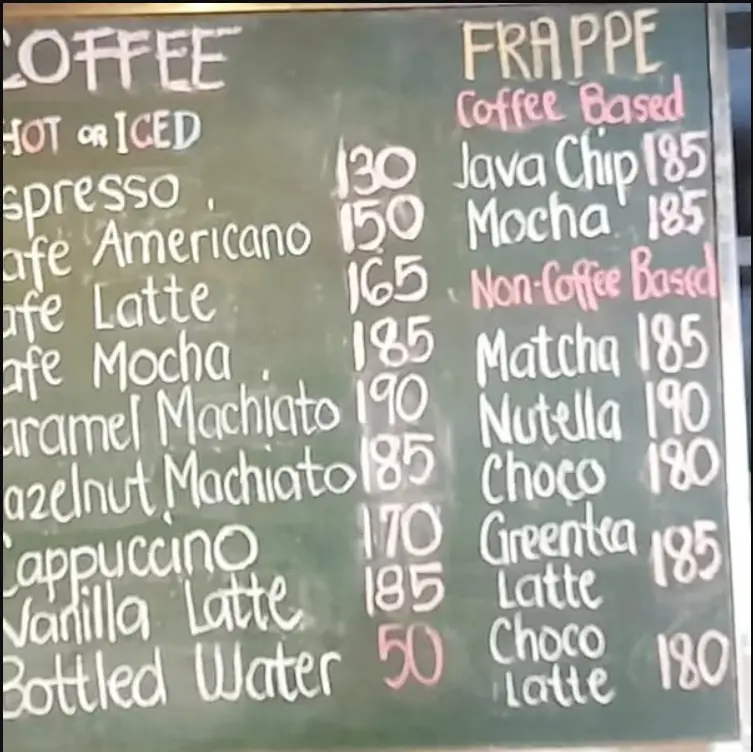 COFFEE
HOT OR ICED
spresso 130
afe Americano 150
afe Latte 165
afe Mocha 185
aramel Machiato 190
azelnut Machiato 185
Cappuccino 170
Vanilla Latte 185
Bottled Water 50
FRAPPE
Coffee Based
Java Chip 185
Mocha 185
Non-Coffee Based
Matcha 185
Nutella 190
Choco 180
Greentea
Latte 185
Choco
Latte 180